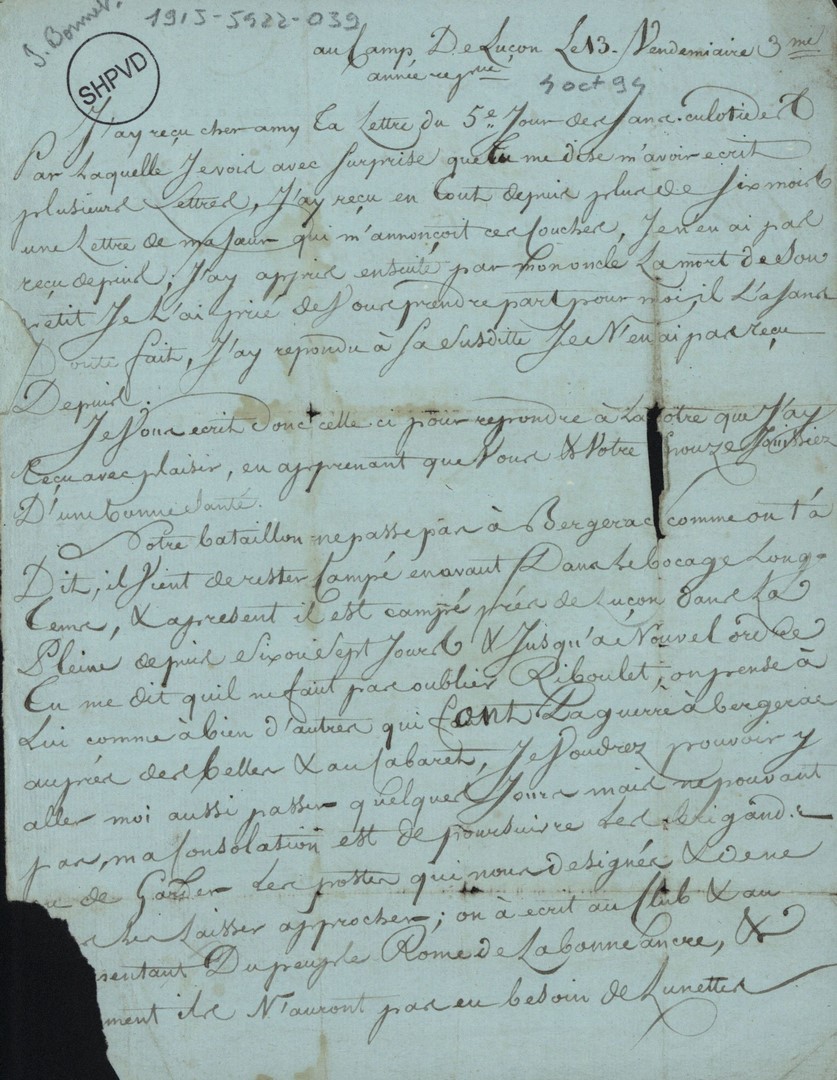 J. Bonnet.
1915-5922-039
SHPVD
au Camp De Luçon Le 13. Vendemiaire 3me
année repue
4 oct 94
J'ay reçu cher amy ta Lettre du 5e Jour des Sans.culotides
Par Laquelle Je vois avec Surprise que tu me dise m'avoir ecrit
plusieurs Lettres, J'ay reçu en tout depuis plus de Six mois
une Lettre de ma Sœur qui m'annonçoit ces Couches, Je n'en ai pas
reçu depuis; J'ay appris ensuite par mon oncle La mort de Son
petit Je L'ai prié de Vous prendre part pour moi, il L'a Sans
Doute fait, J'ay repondu à Sa Susditte Je N'en ai pas reçu
Depuis.
Je Vous ecrit donc celle ci pour repondre à La Vôtre que J'ay
Reçu avec plaisir, en apprenant que Vous & Votre Epouze Jouissiez
D'une bonne Santé.
Notre bataillon ne passe pas à Bergerac comme on t'a
Dit, il Vient de rester Campé en avant Dans Le bocage Long-
tems, & apresent il est campé près de Luçon dans La
Pleine depuis Six ou Sept Jours & Jusqu'a Nouvel ordre
Tu me dit quil ne faut pas oublier Riboulet, on pense à
Lui comme à bien d'autres qui font La guerre à bergerac
auprés des belles & au Cabaret, Je Voudrez pouvoir y
aller moi aussi passer quelques Jours mais ne pouvant
pas, ma Consolation est de poursuivre Les Brigands
ou de Garder Les postes qui nous designés & de ne
Les Laisser approcher; on à ecrit au Club & au
sentant Du peuple Rome de La bonne Encre, &
ment ils N'auront pas eu besoin de Lunettes